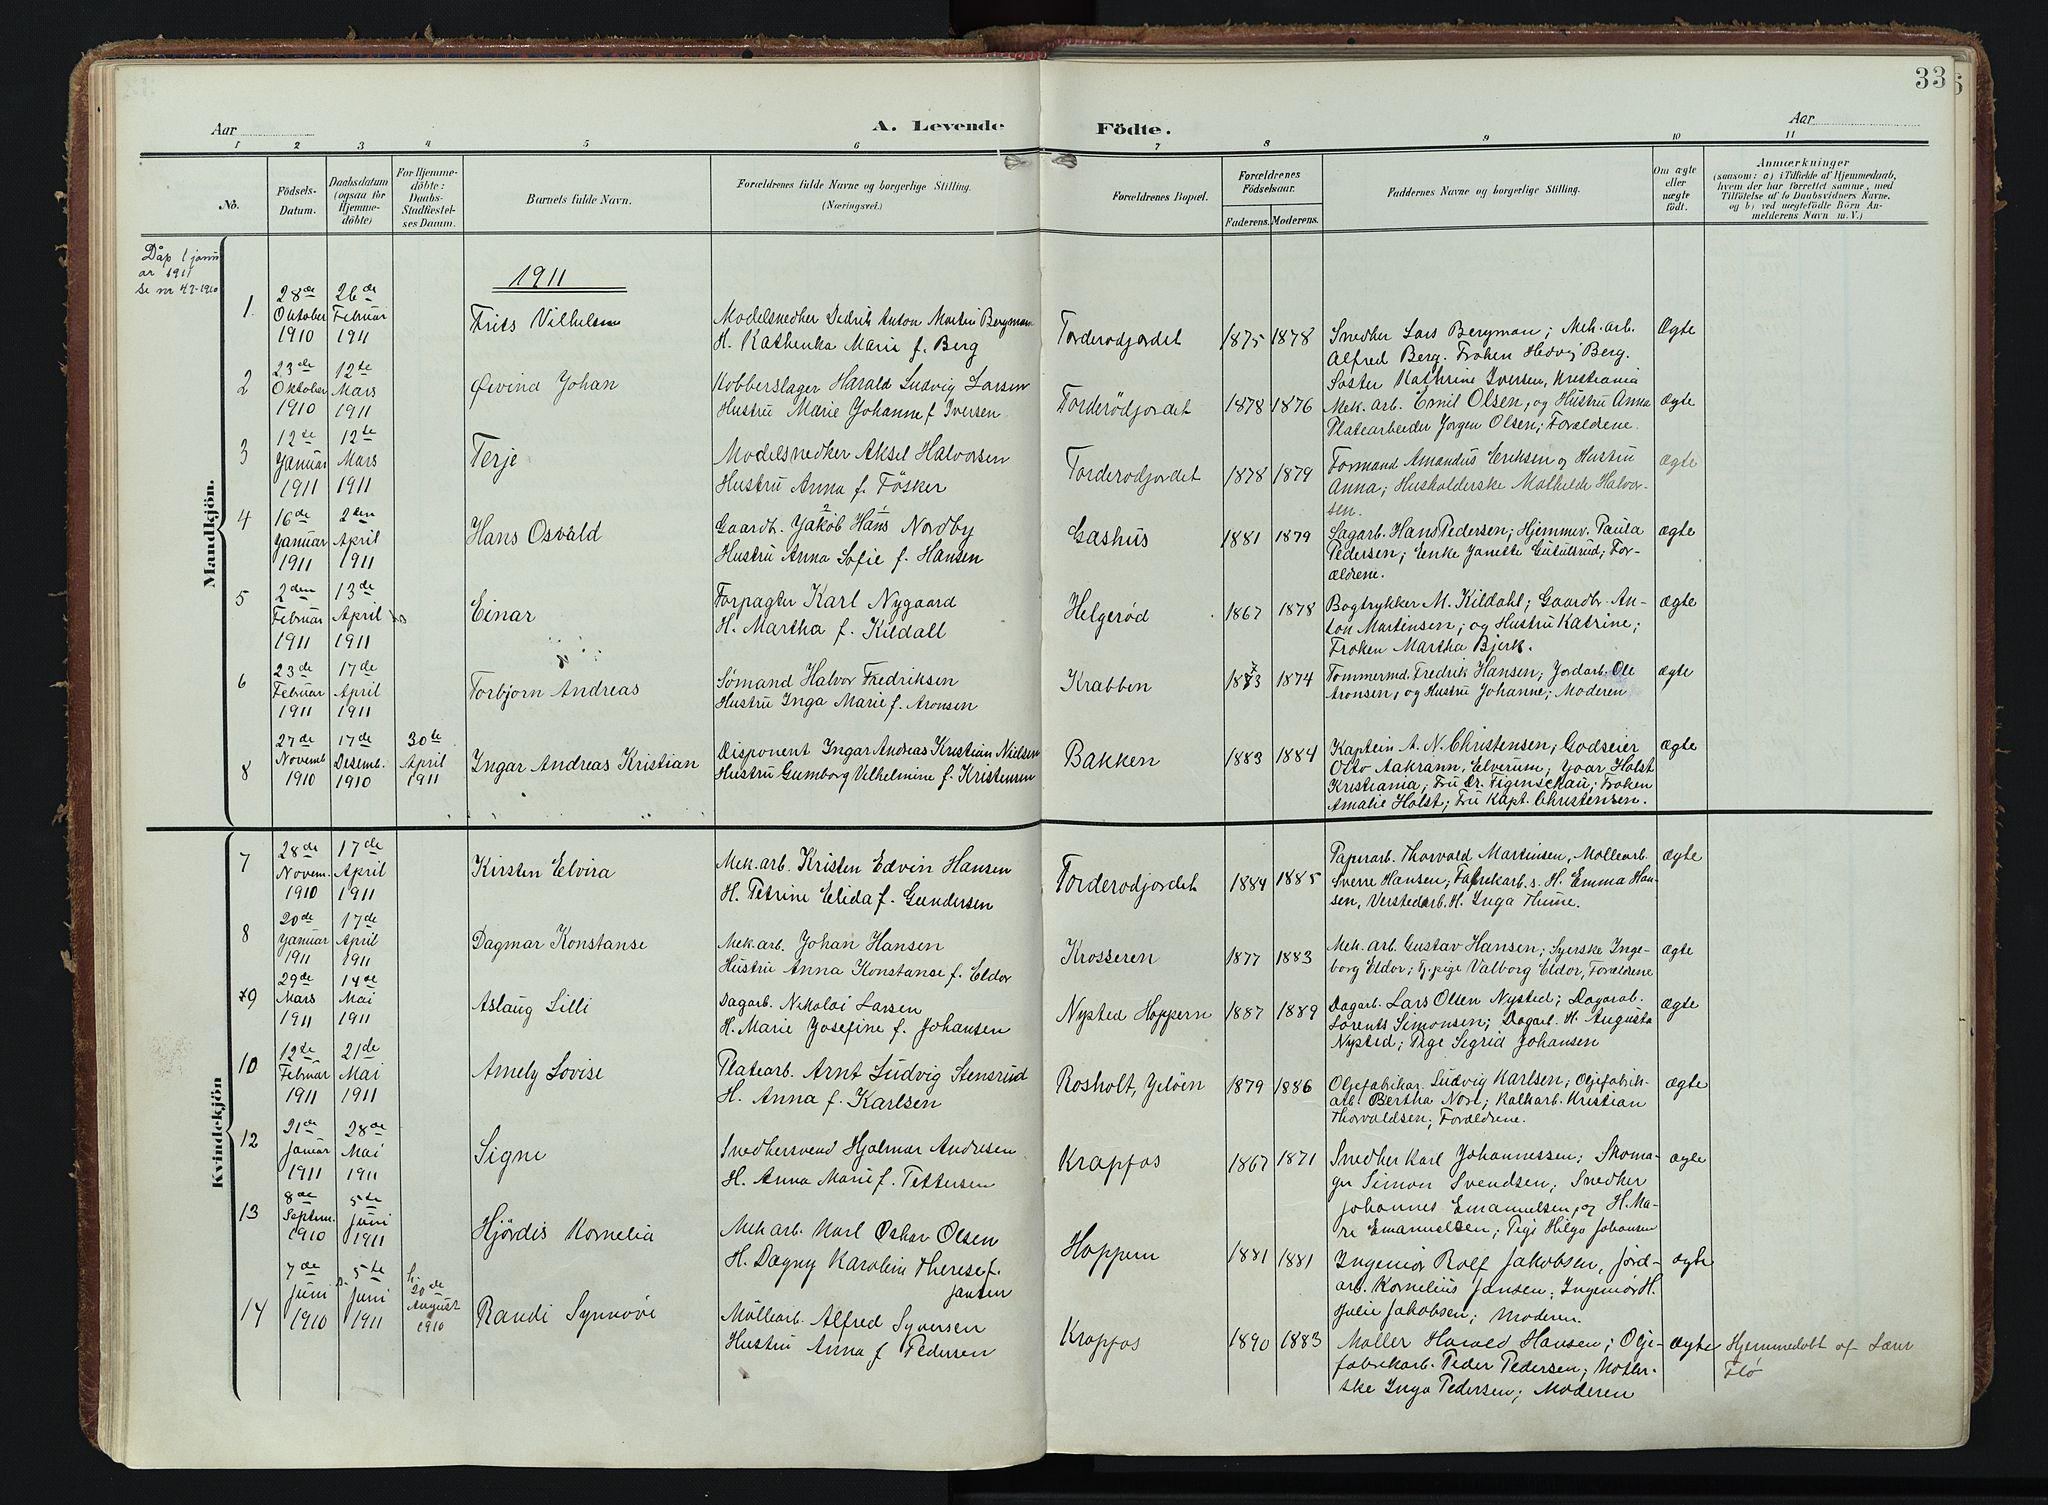 33
Aar
A. Levende Födte.
Aar
1 2 3 4 5 6 7 8 9 10 11
No.
Födsels-
Datum.
Daabsdatum
(ogsaa for
Hjemme-
döbte)
For Hjemme-
döbte:
Daabs-
Stadfæstel-
ses Datum.
Barnets fulde Navn.
Forældrenes fulde Navne og borgerlige Stilling.
(Næringsvei.)
Forældrenes Bopæl.
Forældrenes
Födselsaar.
Faderens. Moderens.
Faddernes Navne og borgerlige Stilling.
Om ægte
eller
uægte
födt.
Anmærkninger
(saasom: a) i Tilfælde af Hjemmedaab,
hvem der har forrettet samme, med
Tilföielse af to Daabsvidners Navne,
og b) ved uægtefödte Börn An-
melderens Navn m. V.)
Dåp 1 janu
ar 1911
se nr 42-1910
1911
Mandkjön.
1.
28de
Oktober
1910
26de
Februar
1911
Frits Vilhelm
Modelsnedker Didrik Anton Martin Bergman
H. Kathenka Marie f. Berg
Torderodjordet
1875 1878
Snedker Lars Bergman; Mek. arb.
Alfred Berg. Frøken Hedvig Berg.
Ægte
2
23de
Oktober
1910
12te
Mars
1911
Øivind Johan
Kobberslager Harald Ludvig Larsen
Hustru Marie Johanne f Iversen
Torderödjordet
1878 1876
Søster Kathrine Iversen, Kristiania
Mek. arb. Emil Olsen, og Hustru Anna
Platearbeider Jørgen Olsen; Forældrene.
ægte
3
12te
Januar
1911
12te
Mars
1911
Terje
Modelsnedker Aksel Halvorsen
Hustru Anna f. Fösker
Torderodjordet
1878 1879
Formand Amandus Eriksen og Hustru
Anna; Husholderske Mathilde Halvor-
sen.
ægte
4
16de
Januar
1911
2den
April
1911
Hans Osvald
2 1
Gaardb. Jakob Hans Nordby
Hustru Anna Sofie f. Hansen
Gashus
1881 1879
Sagarb. Hans Pedersen; Hjemmev. Paula
Pedersen; Enke Janette; For-
ældrene.
ægte
5
2den
Februar
1911
13de
April
1911
Einar
Forpagter Karl Nygaard
H. Martha f. Kildall
Helgerød
1867 1878
Bogtrykker M. Kildahl; Gaardbr. An-
ton Martinsen; og Hustru Katrine;
Frøken Martha Bjerk.
ægte
6
23de
Februar
1911
17de
April
1911
Torbjørn Andreas
Sømand Halvor Fredriksen
Hustru Inga Marie f. Aronsen
Krabben
1873 1874
Tømmermd. Fredrik Hansen; Jordarb. Ole
Aronsen, og Hustru Johanne; Moderen
ægte
8
27de
Novemb
1910
17de
Desemb.
1910
30te
April
1911
Ingar Andreas Kristian
Disponent Ingar Andreas Kristian Nielsen
Hustru Gumborg Vilhelmine f. Kristensen
Bakken
1883 1884
Kaptein A. N. Christensen; Godseier
Otto Aakrann, Elverum; Ivar Holst
Kristiania; Fru Dr. Figenschau; Frøken
Amalie Holst; Fru Kapt. Christensen.
ægte
Kvindekjön
7
28de
Novem.
1910
17de
April
1911
Kirsten Elvira
Mek. arb. Kristen Edvin Hansen
H. Petrine Elida f. Gundersen
Torderodjordet
1884 1885
Papirarb. Thorvald Martinsen, Møllearb.
Sverre Hansen; Fabrikarb. s. H. Emma Han-
sen, Verstedarb. H. Inga Thune.
ægte
8
20de
Januar
1911
17de
April
1911
Dagmar Konstanse
Mek. arb. Johan Hansen
Hustru Anna Konstanse f. Eldor
Krosseren
1877 1883
Mek. arb. Gustav Hansen; Syerske Inge-
borg Eldor; Tj. pige Valborg Eldor, Forældrene
ægte
9
29de
Mars
1911
14de
Mai
1911
Aslaug Lilli
Dagarb. Nikolai Larsen
H. Marie Josefine f. Johansen
Nysted Hoppern
1887 1889
Dagarb. Lars Olsen Nysted; Dagarb.
Lorents Simonsen; Dagarb. H. Augusta
Nysted; Pige Sigrid Johansen
ægte
10
12te
Februar
1911
21de
Mai
1911
Amely Lovise
Platearb. Arnt Ludvig Stensrud
H. Anna f. Karlsen
Rosholt, Jeløen
1879 1886
Oljefabrikar. Ludvig Karlsen; Oljefabrik-
arb. Bertha Nore; Kalkarb. Kristian
Thorvaldsen; Forældrene.
ægte
12
21de
Januar
1911
28de
Mai
1911
Signe
Snedkersvend Hjalmar Andersen
H. Anna Marie f. Pettersen
Krapfos
1867 1871
Snedker Karl Johannessen; Skoma-
ger Simon Svendsen; Snedker
Johannes Emanuelsen, og H. Ma-
rie Emanuelsen; Pige Helga Johansen
ægte
13
8de
Septem.
1910
5te
Juni
1911
Hjørdis Kornelia
Mek arb. Karl Oskar Olsen
H. Dagny Karoline Therese f.
Jansen
Hoppern
1881 1881
Ingeniør Rolf Jakobsen, Jord-
arb. Kornelius Jansen; Ingeniør H.
Julie Jakobsen; Moderen.
ægte
14
7de
Juni
1910
5te
Juni
1911
20de
August
1910
Randi Synnöve
Möllearb. Alfred Syversen
Hustru Anna f Pedersen
Krapfos
1890 1883
Møller Harald Hansen; Olje-
fabrikarb. Peder Pedersen;
ske Inga Pedersen; Moderen
ægte
Hjemmedøbt af Lærer
Flø